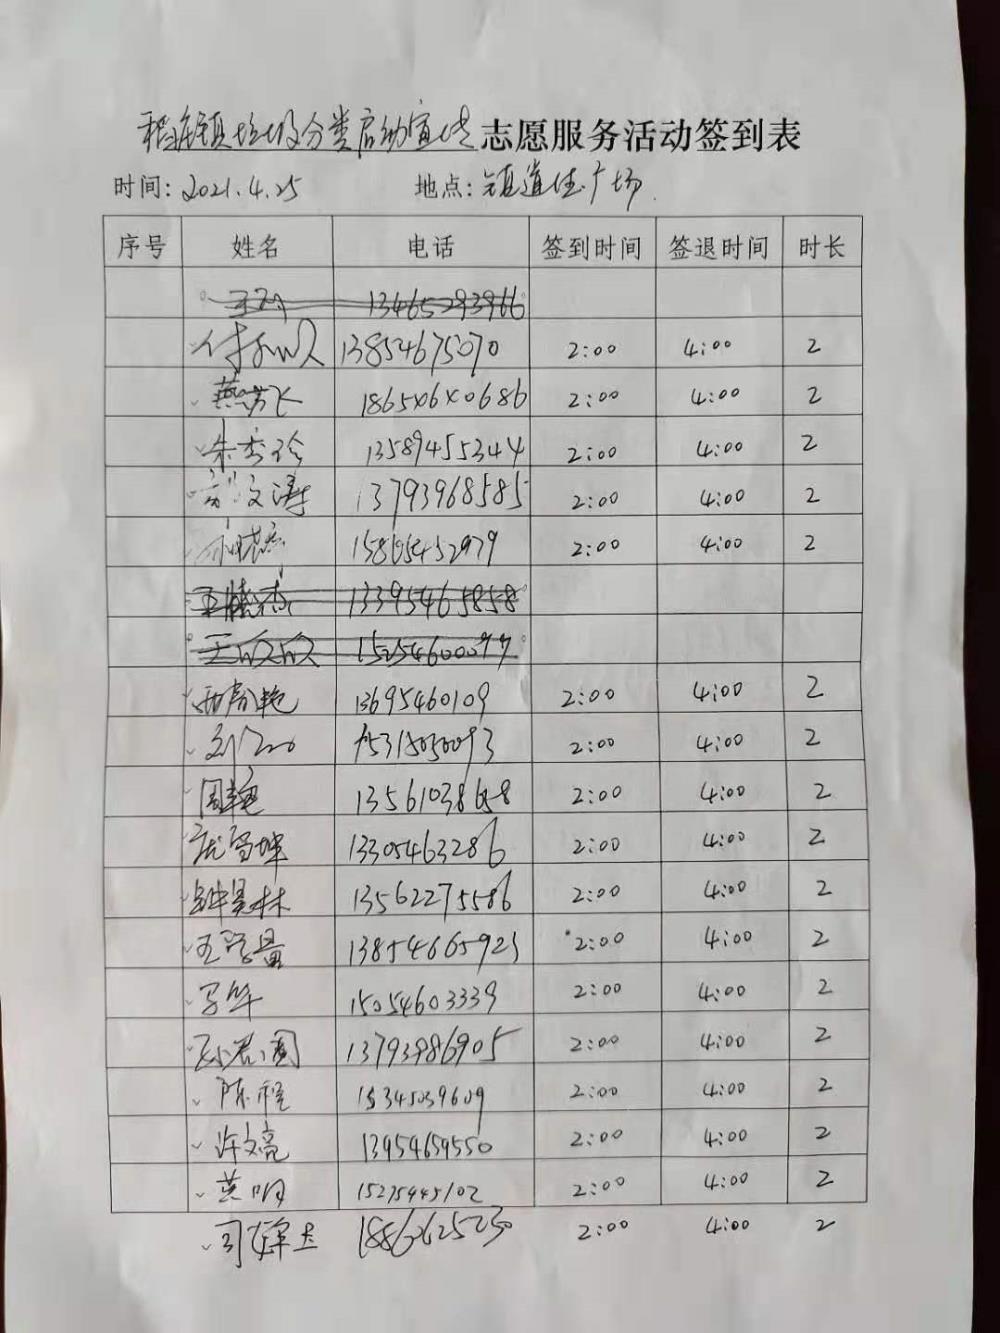 稻庄镇垃圾分类启动宣传志愿服务活动签到表
时间:2021.4.25 地点:镇道佳广场
序号 姓名 电话 签到时间 签退时间 时长
13465293966
13854675070 2:00 4:00 2
燕芳飞 2:00 4:00 2
朱秀玲 13589455344 2:00 4:00 2
文涛 13793968585 2:00 4:00 2
2:00 4:00 2
王晓杰 13395465858
王欣欣 15254600077
13695460109 2:00 4:00 2
2:00 4:00 2
周艳 2:00 4:00 2
13305463286 2:00 4:00 2
钟昊林 13562275586 2:00 4:00 2
13854665923 2:00 4:00 2
15054603339 2:00 4:00 2
孙志国 13793986905 2:00 4:00 2
陈程 15345039609 2:00 4:00 2
许文亮 13954659550 2:00 4:00 2
黄明 15275445102 2:00 4:00 2
2:00 4:00 2